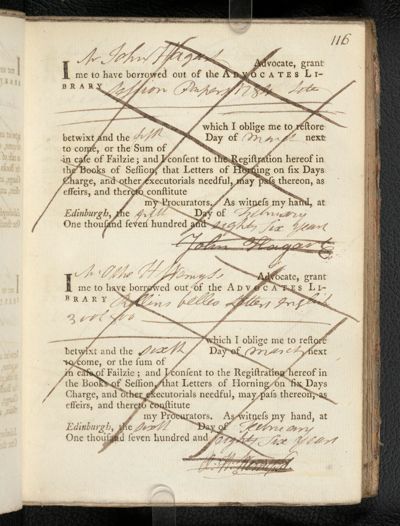 116
I Mr John Hagart Advocate, grant
me to have borrowed out of the ADVOCATES LI-
BRARY Session Papers 1784
which I oblige me to reſtore
betwixt and the sixth Day of March next
to come, or the Sum of
in caſe of Failzie; and I conſent to the Regiſtration hereof in
the Books of Seſſion, that Letters of Horning on ſix Days
Charge, and other executorials needful, may paſs thereon, as
effeirs, and thereto conſtitute
my Procurators. As witneſs my hand, at
Edinburgh, the sixth Day of February
One thouſand ſeven hundred and eighty six years
John Hagart
I Mr Advocate, grant
me to have borrowed out of the ADVOCATES LI-
BRARY Rollins belles Letters English
3 vol
which I oblige me to reſtore
betwixt and the sixth Day of March next
to come, or the ſum of
in caſe of Failzie; and I conſent to the Regiſtration hereof in
the Books of Seſſion, that Letters of Horning on ſix Days
Charge, and other executorials needful, may paſs thereon, as
effeirs, and thereto conſtitute
my Procurators. As witneſs my hand, at
Edinburgh, the sixth Day of February
One thouſand ſeven hundred and eighty six years